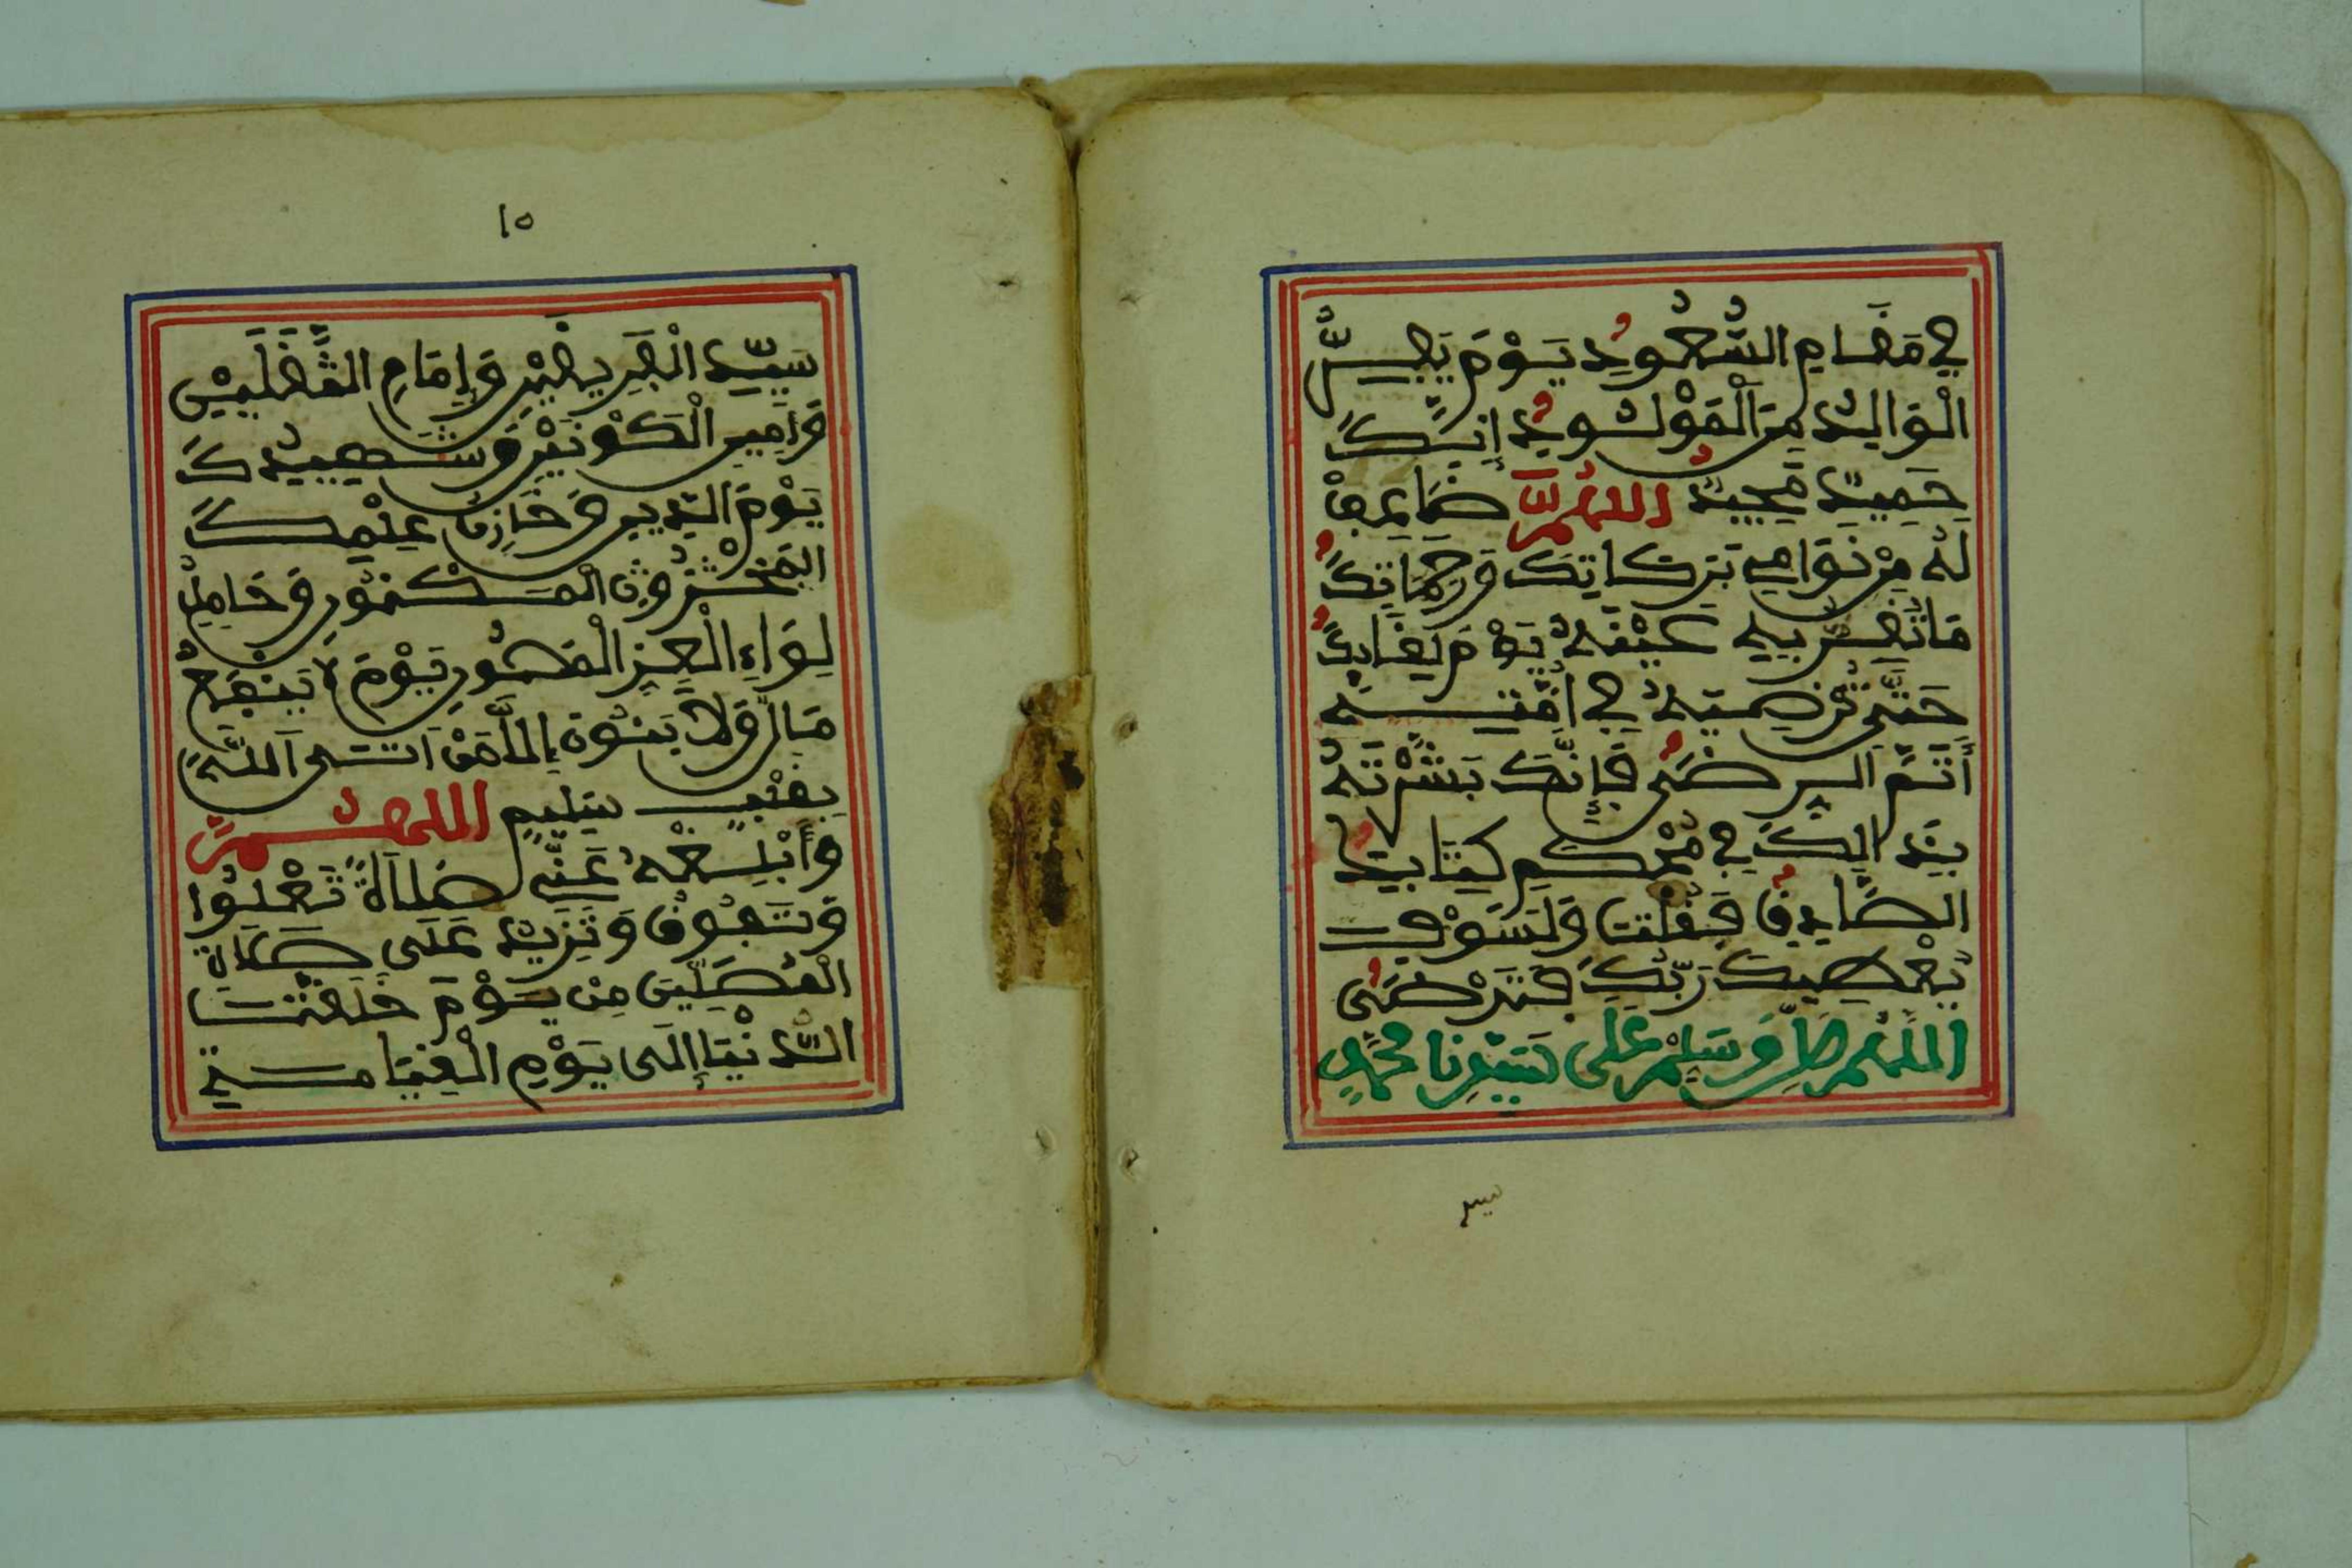 في مقام الشهود يوم يفر
الوالد من المولود إنك
حميد مجيد اللهم ضاعف
له من نوامي بركاتك ورحماتك
ما تقر به عينه يوم لقائك
حتى ترضيه في أمته
أتم الرضى فإنك بشرته
بذالك في محكم كتابك
الصادق فقلت ولسوف
يعطيك ربك فترضى
اللهم صل وسلم على سيدنا محمد
سيد
١٥
سيد الفريقين وإمام الثقلين
وأمير الكونين وشهيدك
يوم الدين وخازن علمك
المخزون المكنون وحامل
لواء العز المصون يوم لا ينفع
مال ولا بنون إلا من أتى الله
بقلب سليم اللهم
وأبلغه عني صلاة تعلوا
وتفوق وتزيد على صلاة
المصلين من يوم خلقت
الدنيا إلى يوم القيامة